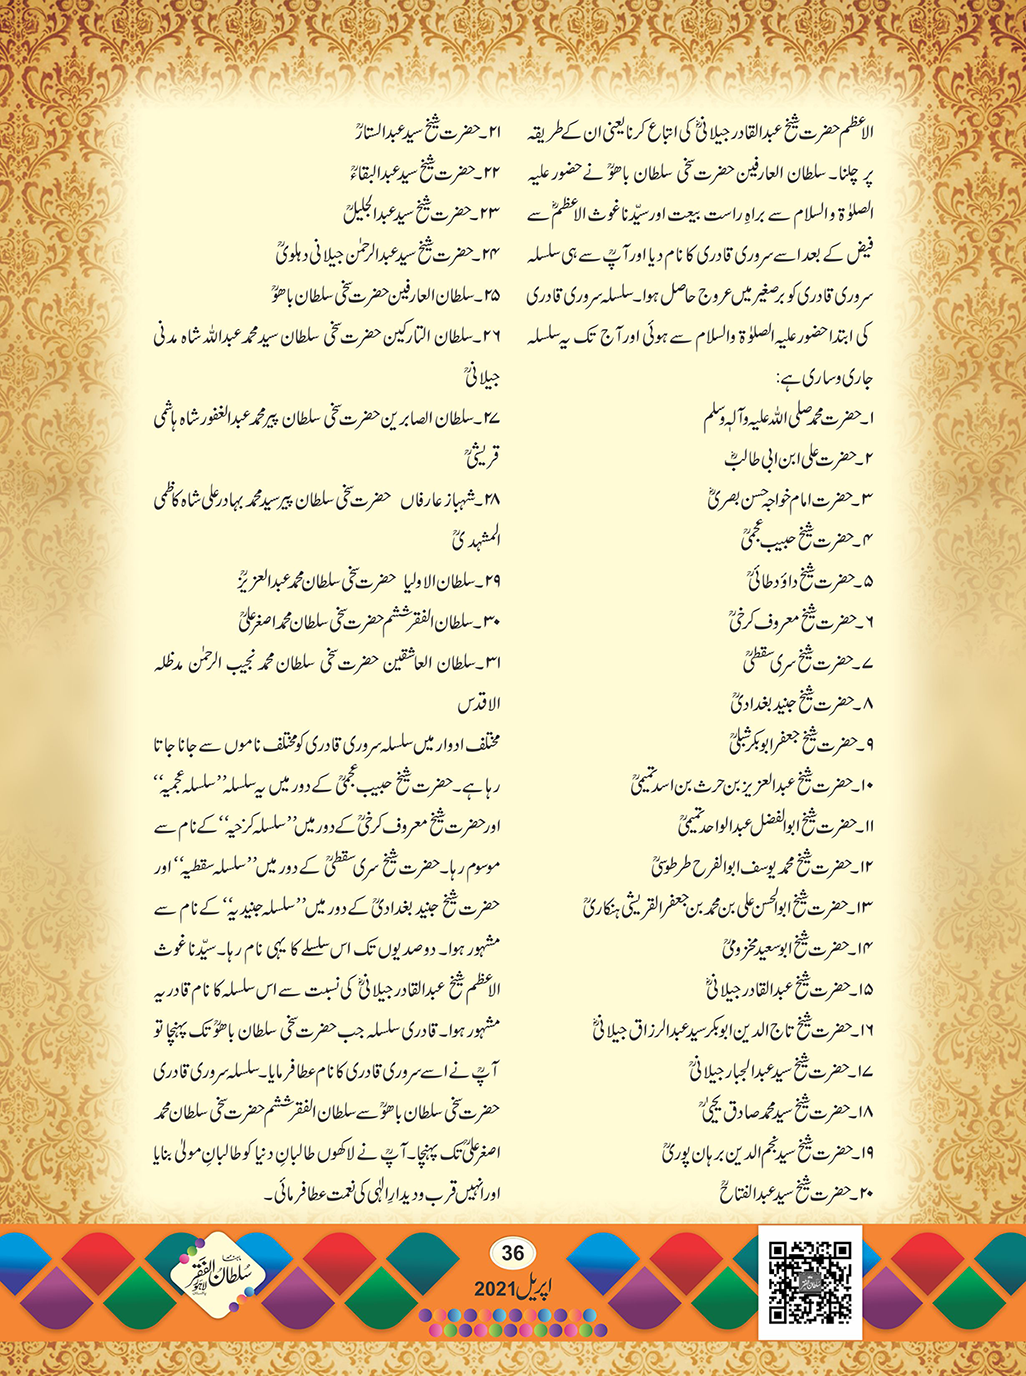 الاعظم حضرت شیخ عبدالقادر جیلانیؓ کی اتباع کرنا یعنی ان کے طریقہ
پر چلنا۔ سلطان العارفین حضرت سخی سلطان باھُوؒ نے حضور علیہ
الصلوٰۃ والسلام سے براہِ راست بیعت اور سیّدنا غوث الاعظمؓ سے
فیض کے بعد اسے سروری قادری کا نام دیا اور آپؒ سے ہی سلسلہ
سروری قادری کو برصغیر میں عروج حاصل ہوا۔ سلسلہ سروری قادری
کی ابتدا حضور علیہ الصلوٰۃ والسلام سے ہوئی اور آج تک یہ سلسلہ
جاری و ساری ہے:
۱۔حضرت محمد صلی اللہ علیہ وآلہٖ وسلم
۲۔حضرت علی ابن ابی طالبؓ
۳۔حضرت امام خواجہ حسن بصریؓ
۴۔حضرت شیخ حبیب عجمیؒ
۵۔حضرت شیخ داؤد طائیؒ
۶۔حضرت شیخ معروف کرخیؒ
۷۔حضرت شیخ سری سقطیؒ
۸۔حضرت شیخ جنید بغدادیؒ
۹۔حضرت شیخ جعفر ابوبکر شبلیؒ
۱۰۔حضرت شیخ عبدالعزیز بن حرث بن اسد تمیمیؒ
۱۱۔حضرت شیخ ابوالفضل عبدالواحد تمیمیؒ
۱۲۔حضرت شیخ محمد یوسف ابوالفرح طرطوسیؒ
۱۳۔حضرت شیخ ابوالحسن علی بن محمد بن جعفر القریشی ہنکاریؒ
۱۴۔حضرت شیخ ابوسعید مخزومیؒ
۱۵۔حضرت شیخ عبدالقادر جیلانیؓ
۱۶۔حضرت شیخ تاج الدین ابوبکر سید عبدالرزاق جیلانیؒ
۱۷۔حضرت شیخ سید عبدالجبار جیلانیؒ
۱۸۔حضرت شیخ سید محمد صادق یحییٰؒ
۱۹۔حضرت شیخ سید نجم الدین برہان پوریؒ
۲۰۔حضرت شیخ سید عبدالفتاحؒ
۲۱۔حضرت شیخ سید عبدالستارؒ
۲۲۔حضرت شیخ سید عبدالبقاءؒ
۲۳۔حضرت شیخ سید عبدالجلیلؒ
۲۴۔حضرت شیخ سید عبدالرحمٰن جیلانی دہلویؒ
۲۵۔سلطان العارفین حضرت سخی سلطان باھُوؒ
۲۶۔سلطان التارکین حضرت سخی سلطان سید محمد عبداللہ شاہ مدنی
جیلانیؒ
۲۷۔سلطان الصابرین حضرت سخی سلطان پیر محمد عبدالغفور شاہ ہاشمی
قریشیؒ
۲۸۔شہبازِ عارفاں حضرت سخی سلطان پیر سید محمد بہادر علی شاہ کاظمی
المشہدیؒ
۲۹۔سلطان الاولیا حضرت سخی سلطان محمد عبدالعزیزؒ
۳۰۔سلطان الفقر ششم حضرت سخی سلطان محمد اصغر علیؒ
۳۱۔سلطان العاشقین حضرت سخی سلطان محمد نجیب الرحمٰن مدظلہ
الاقدس
مختلف ادوار میں سلسلہ سروری قادری کو مختلف ناموں سے جانا جاتا
رہا ہے۔ حضرت شیخ حبیب عجمیؒ کے دور میں یہ سلسلہ ’’سلسلہ عجمیہ‘‘
اور حضرت شیخ معروف کرخیؒ کے دور میں ’’سلسلہ کرخیہ‘‘ کے نام سے
موسوم رہا۔ حضرت شیخ سری سقطیؒ کے دور میں ’’سلسلہ سقطیہ‘‘ اور
حضرت شیخ جنید بغدادیؒ کے دور میں ’’سلسلہ جنیدیہ‘‘ کے نام سے
مشہور ہوا۔ دو صدیوں تک اس سلسلے کا یہی نام رہا۔ سیّدنا غوث
الاعظم شیخ عبدالقادر جیلانیؓ کی نسبت سے اس سلسلہ کا نام قادریہ
مشہور ہوا۔ قادری سلسلہ جب حضرت سخی سلطان باھُوؒ تک پہنچا تو
آپؒ نے اسے سروری قادری کا نام عطا فرمایا۔ سلسلہ سروری قادری
حضرت سخی سلطان باھُوؒ سے سلطان الفقر ششم حضرت سخی سلطان محمد
اصغر علیؒ تک پہنچا۔ آپؒ نے لاکھوں طالبانِ دنیا کو طالبانِ مولیٰ بنایا
اور انہیں قرب و دیدارِ الٰہی کی نعمت عطا فرمائی۔
ماہنامہ
سُلطان الفقر
لاہور
36
اپریل 2021